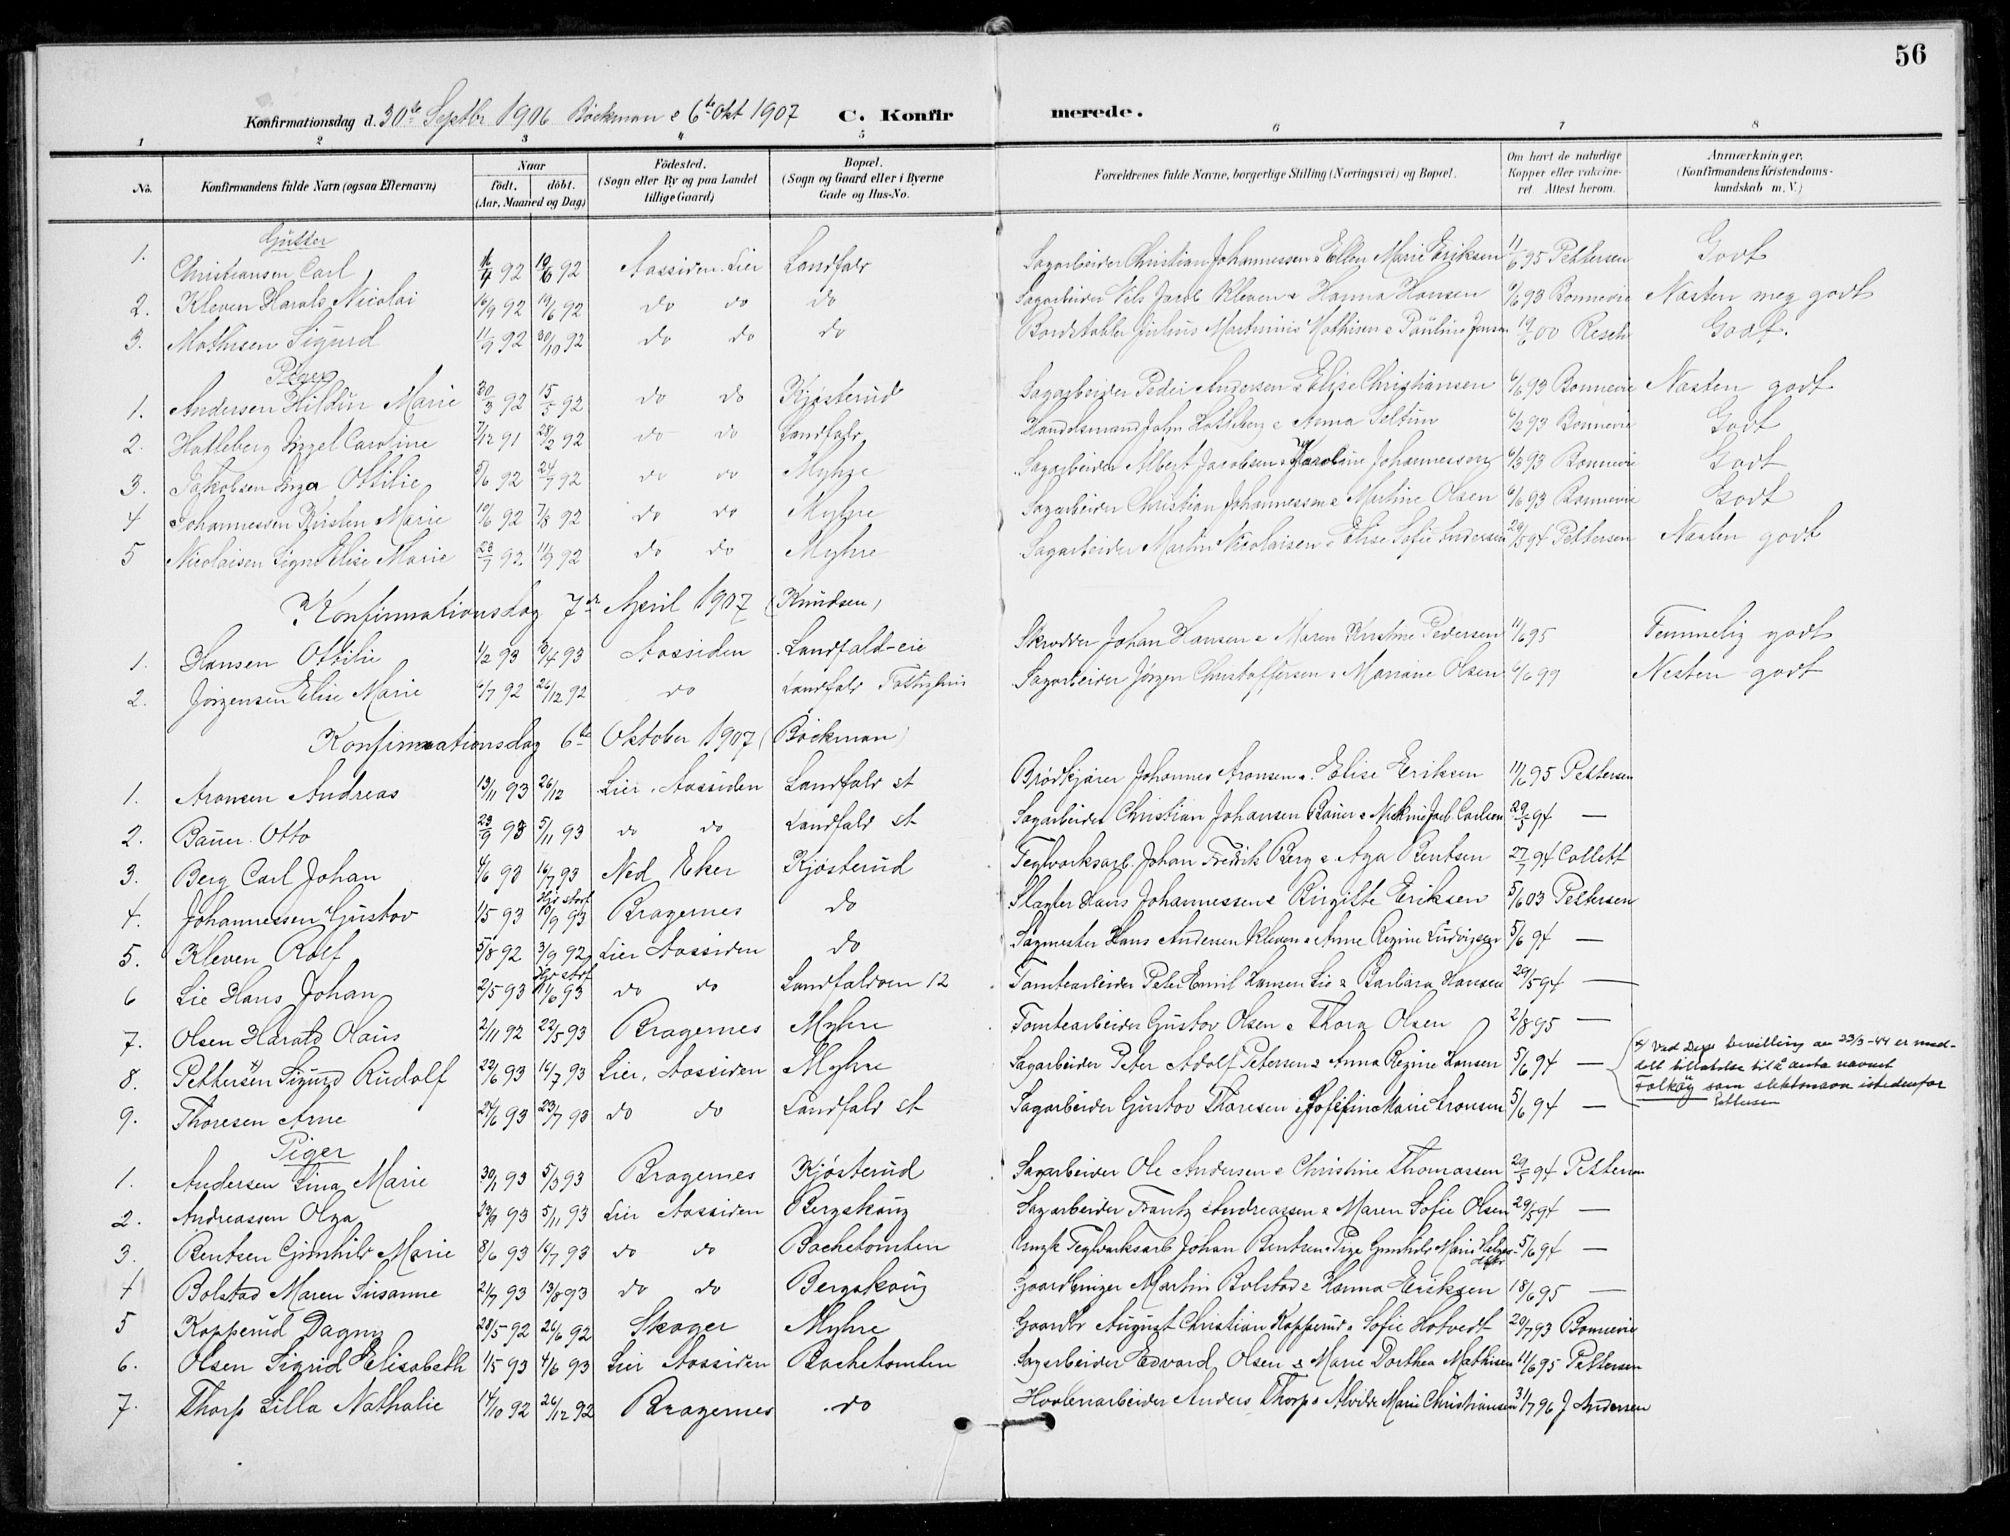 56
Konfirmationsdag d. 30te Septbr 1906 Böckman & 6te Okt 1907 C. Konfir merede.
1 2 3 4 5 6 7 8
No. Konfirmandens fulde Navn (ogsaa Efternavn) Naar født, døbt. (Aar, Maaned og Dag) Fødested. (Sogn eller By og paa Landet tillige Gaard) Bopæl. (Sogn og Gaard eller i Byerne Gade og Hus-No. Forældrenes fulde Navne, borgerlige Stilling (Næringsvei) og Bopæl. Om havt de naturlige Kopper eller vakcineret. Attest herom. Anmærkninger. (Konfirmandens Kristendomskundskab m. V.)
Gutter
1. Christiansen Carl 16/4 92 19/6 92 Aassiden. Lier Landfald Sagarbeider Christian Johannessen & Ellen Marie Eriksen 11/6 95 Pettersen Godt
2. Kleven Harald Nicolai 92 19/6 92 do do do Sagarbeider Nils Jacob Kleven & Hanna Hansen 6/6 93 Bonnevie Næsten meg godt
3. Mathisen Sigurd 11/9 92 30/10 92 do do do Bordstabler Julius Martinius Mathisen & Pauline Jensen 19/6 00 Resch Godt.
Piger
1. Andersen Hildur Marie 30/3 92 15/5 92 do do Kjøsterud Sagarbeider Peder Andersen & Elise Christiansen 6/6 93 Bonnevie Næsten godt
2. Hatleberg Inzel Caroline 7/12 91 28/2 92 do do Landfald Handelsmand John Hatleberg & Anna Seltun 93 Bonnevie Godt
3. Jakobsen Inga Ottilie 5/6 92 24/7 92 do do Myhre Sagarbeider Albert Jacobsen & Karoline Johannessen 93 Bonnevie Godt
4 Johannessen Kirsten Marie 10/6 92 7/8 92 do do Myhre Sagarbeider Christian Johannessen & Martine Olsen 6/6 93 Bonnevie Godt
5 Nicolaisen Signe Elise Marie 23/7 92 11/9 92 do do Myhre Sagarbeider Martin Nicolaisen & Elise Sofie Andersen 29/5 94 Pettersen Næsten godt
Konfirmationsdag 7de April 1907 (Knudsen)
1. Hansen Ottilie 1/2 93 3/4 93 Aassiden Landfald-eie Skrædder Johan Hansen & Maren Kirstine Pedersen 11/6 95 Temmelig godt
2. Jørgensen Elise Marie 6/7 92 26/12 92 do Landfald Fattighus Sagarbeider Jørgen Christoffersen & Mariane Olsen 6/6 99 Nesten godt
Konfirmationsdag 6te Oktober 1907 (Böckman)
1. Aronsen Andreas 13/11 93 26/12 Lier, Aassiden Landfald st Brødkjører Johannes Aronsen & Elise Eriksen 11/6 95 Pettersen
2. Bauer Otto 23/9 93 5/11 93 do do Landfald st Sagarbeider Christian Johansen Bauer & Carlsen 29/5 94 —
3. Berg Carl Johan 4/6 93 16/7 93 Ned Eker Kjøsterud Teglværksarb. Johan Fredrik Berg & Aga Bentsen 27/7 94 Collett
4. Johannessen Gustav 1/5 93 Hjd stadf 10/9 93 Bragernes do Slagter Hans Johannessen & Birgitte Eriksen 5/6 03 Pettersen
5. Kleven Rolf 5/8 92 3/9 92 Lier Aassiden do Sagmester Hans Andersen Kleven & Anne Regine Ludvigsen 5/6 94 —
6 Lie Hans Johan 2/5 93 Hjd stadf 11/6 93 do do Landfaldøen 12 Tomtearbeider Peter Emil Hansen Lie & Barbara Hansen 29/5 94 —
7. Olsen Harald Olaus 2/11 92 22/5 93 Bragernes Myhre Tomtearbeider Gustav Olsen & Thora Olsen 2/8 95 —
8. Pettersen x) Sigurd Rudolf 22/6 93 16/7 93 Lier, Aassiden Myhre Sagarbeider Peter Adolf Petersen & Anna Regine Hansen 5/6 94 — x) Ved Deps bevilling av 23/3-44 er meddelt tillatelse til å anta navnet Falkøy som slektsnavn istedenfor Pettersen
9. Thoresen Arne 24/6 93 23/7 93 do do Landfald st Sagarbeider Gustav Thoresen & Josefine Marie Aronsen 5/6 94 —
Piger
1. Andersen Lina Marie 30/1 93 5/3 93 Bragernes Kjøsterud Sagarbeider Ole Andersen & Christine Thomassen 29/5 94 Pettersen
2. Andreassen Olga 23/9 93 5/11 93 Lier Aassiden Bergskoug Sagarbeider Frantz Andreassen & Maren Sofie Olsen 29/5 94 —
3. Bentsen Gunhild Marie 8/6 93 16/7 93 do do Bachetomten Teglværksarb Johan Bentsen & Pige Gunhild Marie 5/6 94 —
4 Bolstad Maren Susanne 2/7 93 13/8 93 do do Bergskoug Gaardbruger Martin Bolstad & Hanna Eriksen 18/6 95 —
5 Kopperud Dagny 28/5 92 26/6 92 Skoger Myhre Gaardbr August Christian Kopperud & Sofie Hotvedt 20/7 93 Bonnevie
6. Olsen Sigrid Elisabeth 1/5 93 4/6 93 Lier Aassiden Bachetomten Sagarbeider Edvard Olsen & Marie Dorthea Mathisen 11/6 95 Pettersen
7. Thorp Lilla Nathalie 14/10 92 26/12 92 Bragernes do Høvleriarbeider Anders Thorp & Alvilde Marie Christiansen 31/7 96 J Andersen